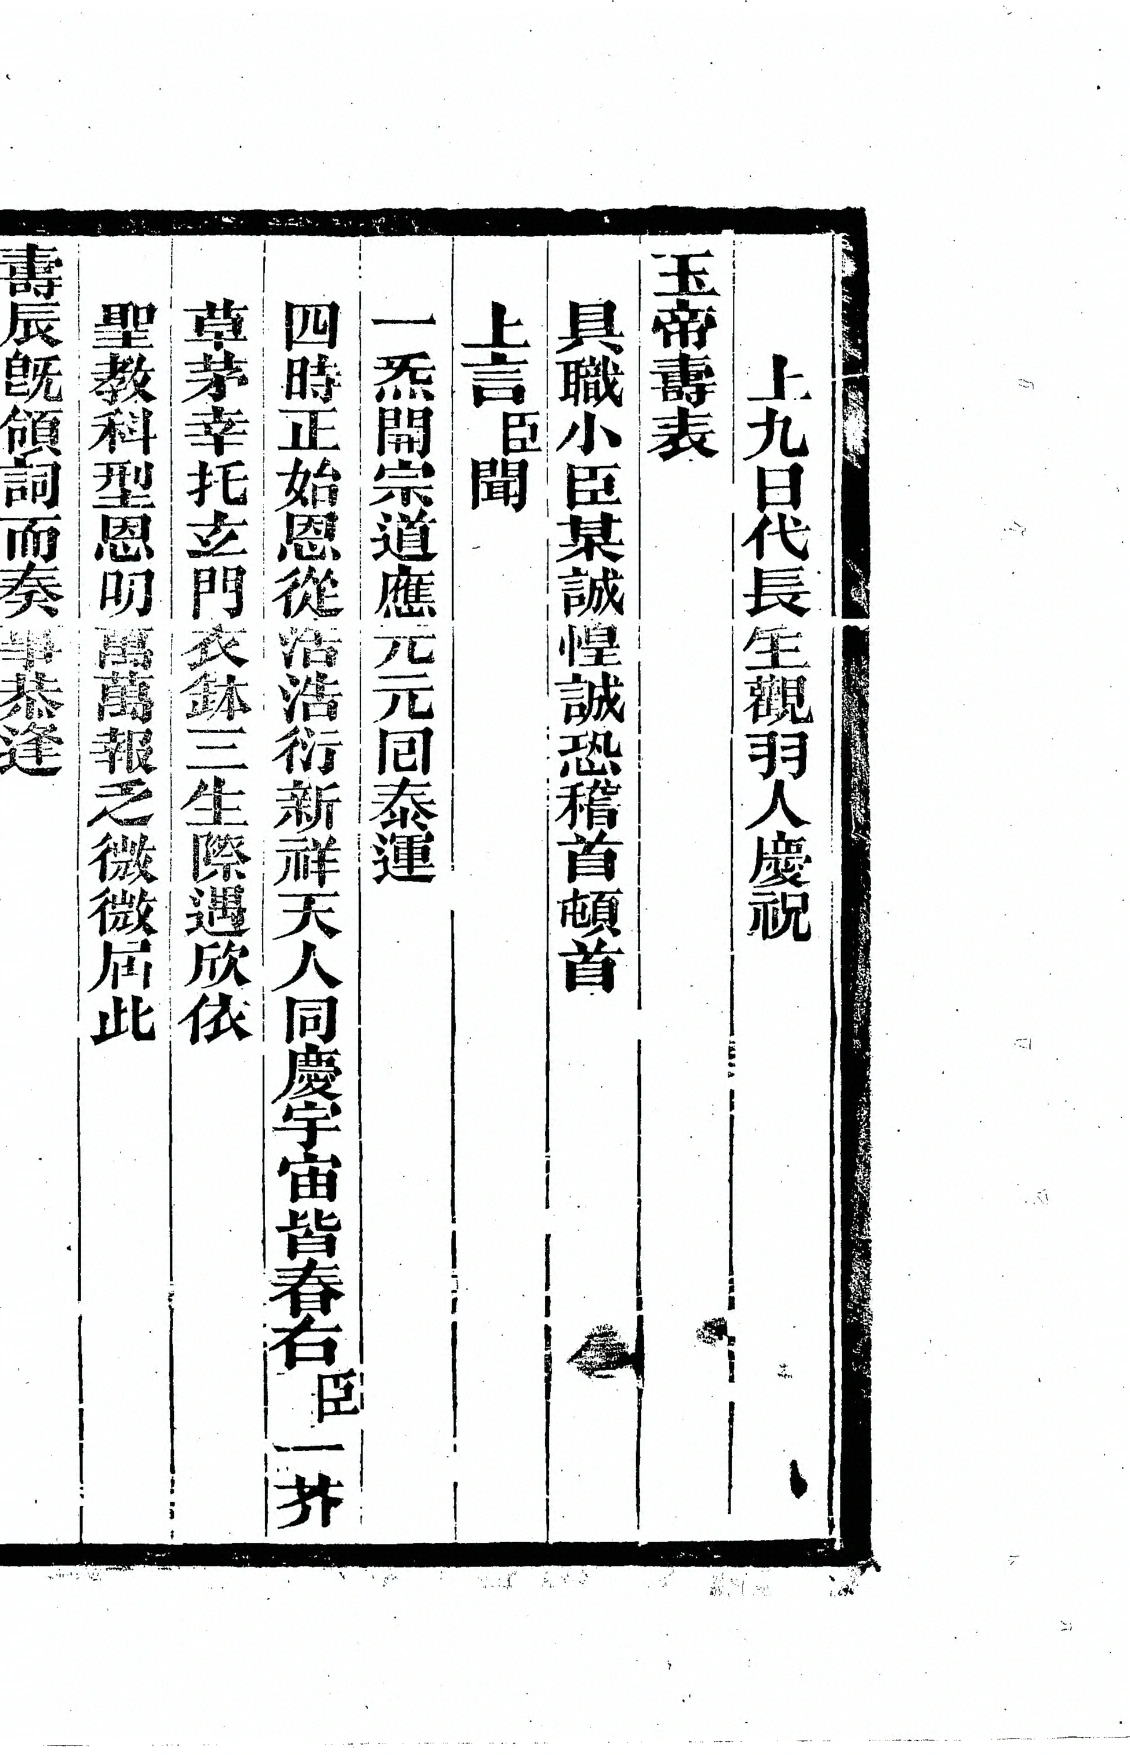 上九日代長生觀羽人慶祝
玉帝壽表
具職小臣某誠惶誠恐稽首頓首
上言臣聞
一炁開宗道應元元囘泰運
四時正始恩從浩浩衍新祥天人同慶宇宙皆春右臣一芥
草茅幸托玄門衣鉢三生際遇欣依
聖教科型恩叨萬萬報乏微微屆此
壽辰旣頒詞而奏事恭逢